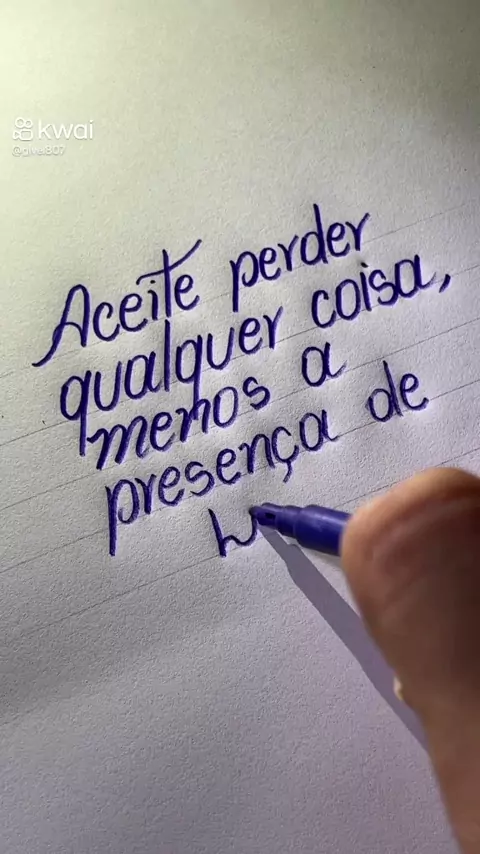 kwai
Aceite perder
qualquer coisa,
menos a
presença de